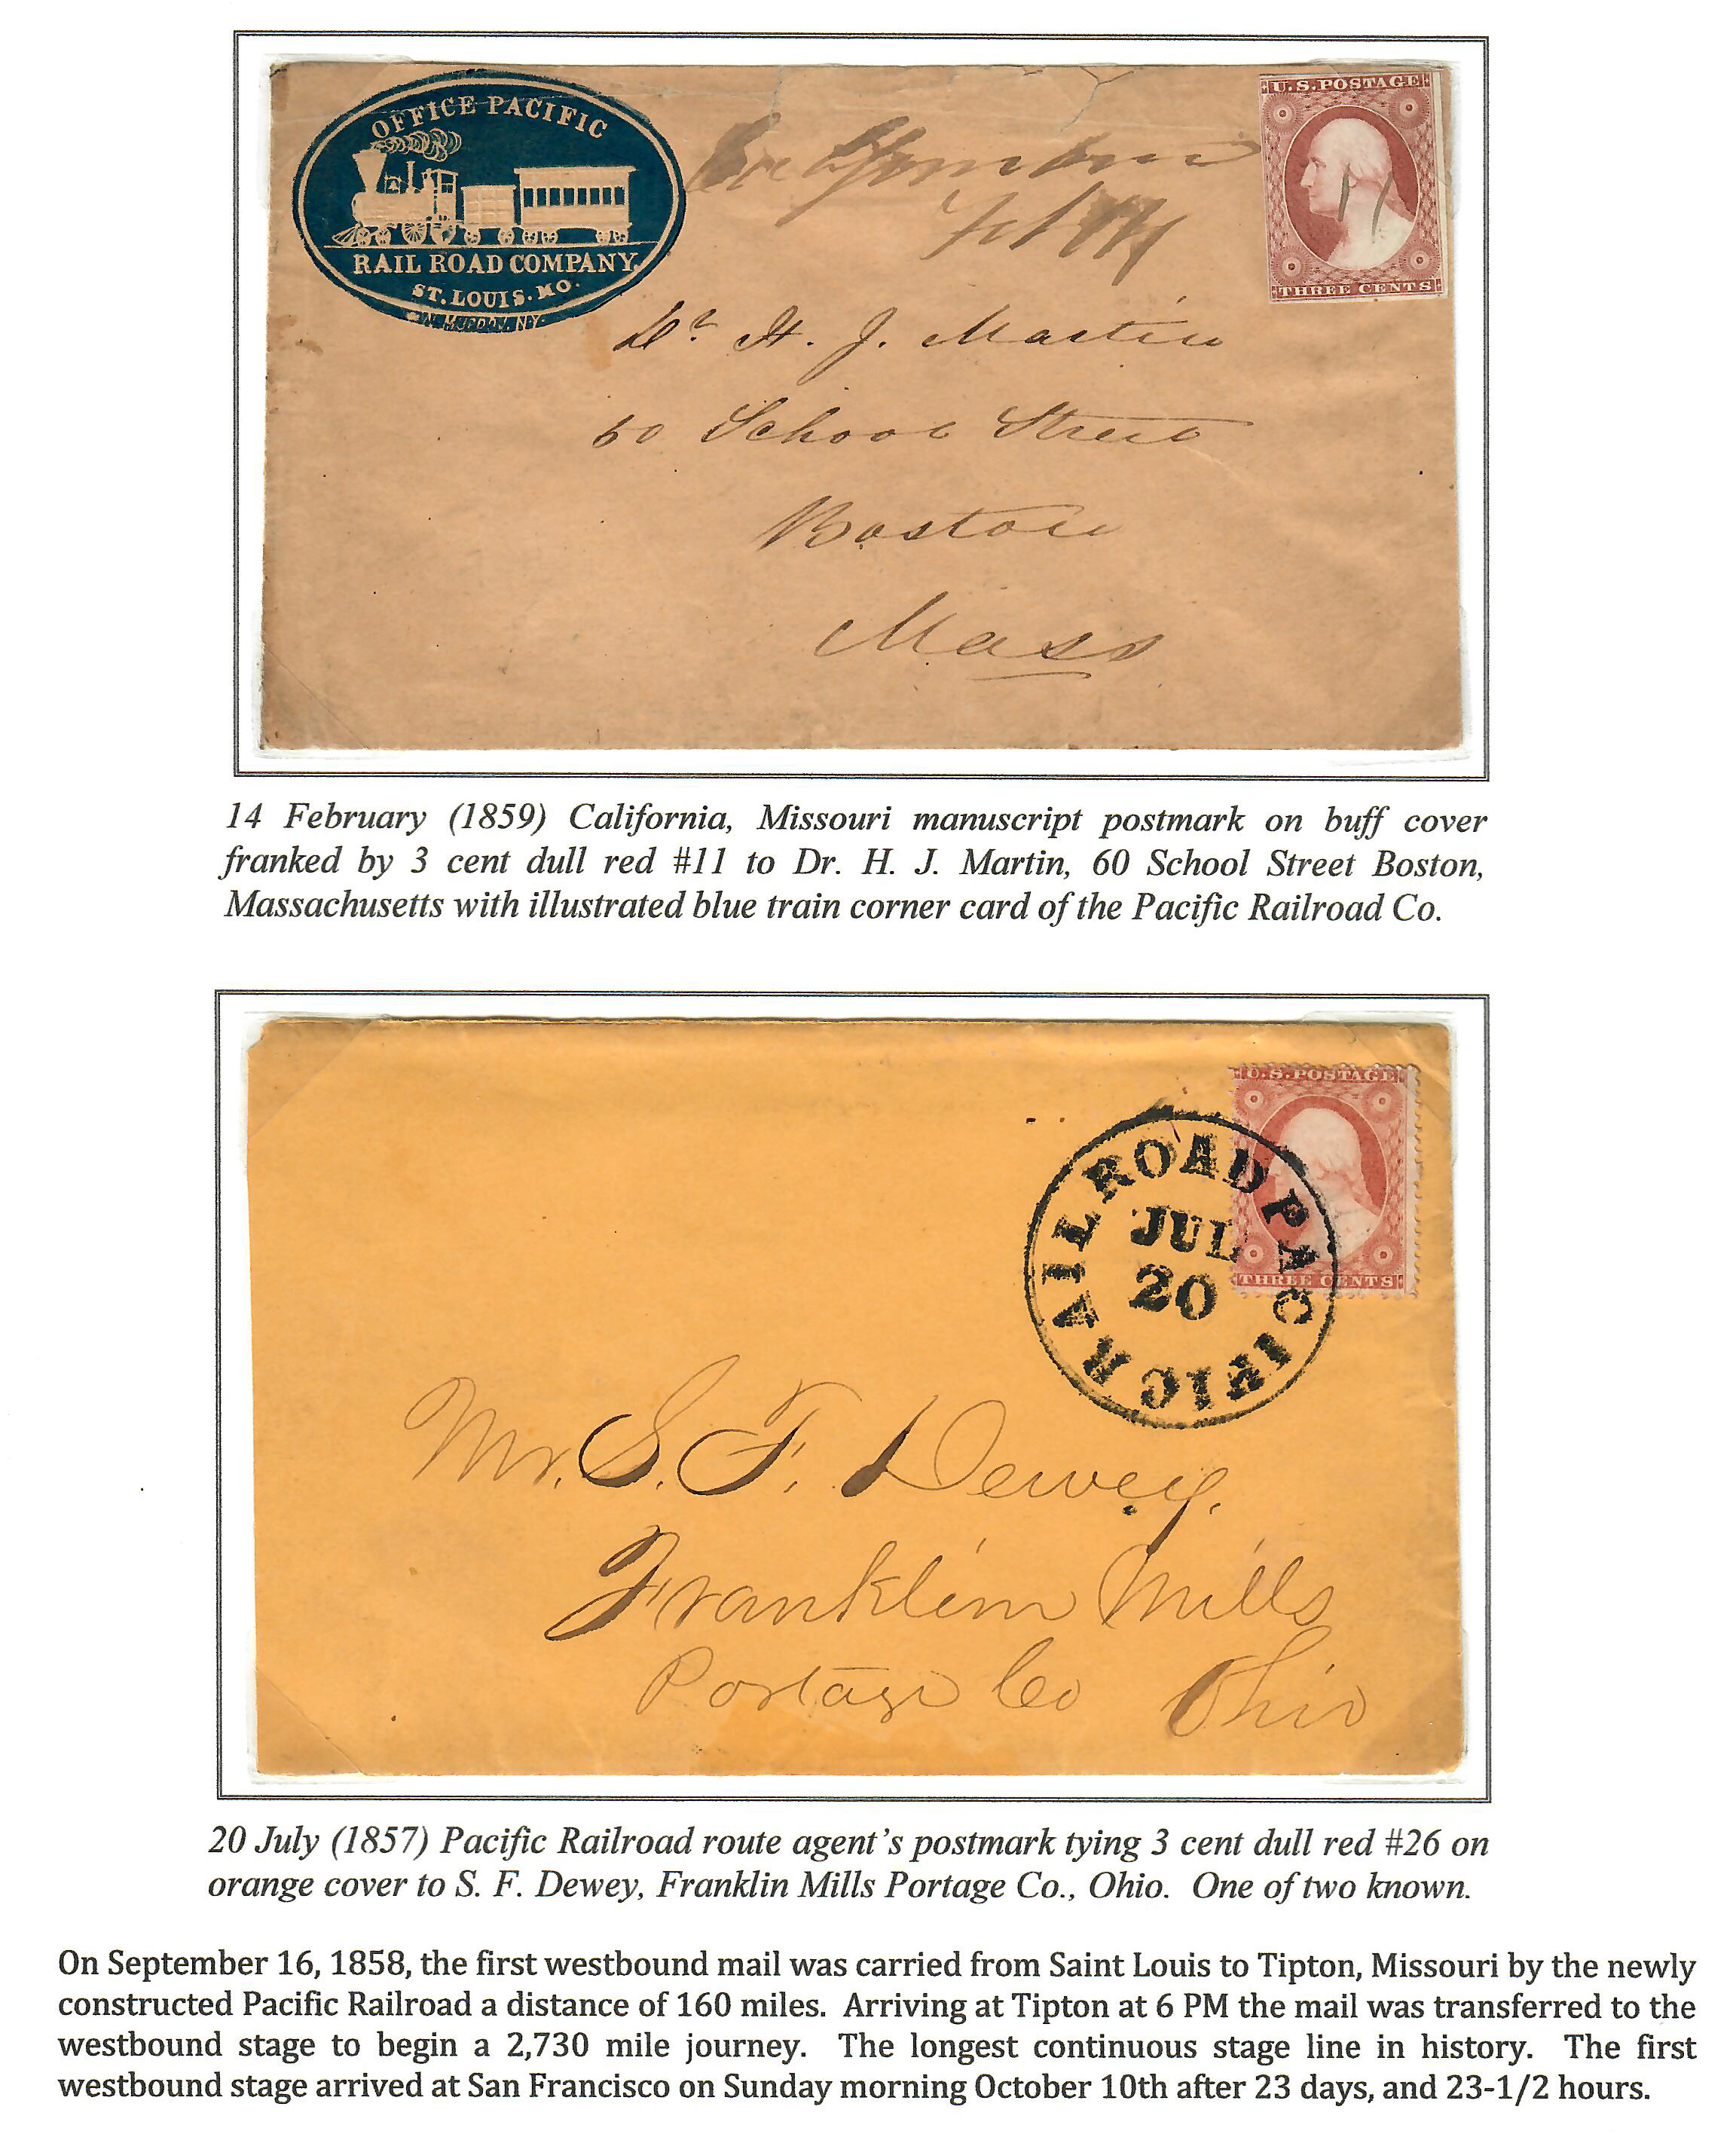 OFFICE PACIFIC
RAIL ROAD COMPANY
ST. LOUIS. MO.
California
Feb 14
U.S. POSTAGE
THREE CENTS
Dr. H. J. Martin
60 School Street
Boston
Mass
14 February (1859) California, Missouri manuscript postmark on buff cover
franked by 3 cent dull red #11 to Dr. H. J. Martin, 60 School Street Boston,
Massachusetts with illustrated blue train corner card of the Pacific Railroad Co.
U.S. POSTAGE
THREE CENTS
PACIFIC RAILROAD
JUL
20
Mr. S. F. Dewey.
Franklin Mills
Portage Co Ohio
20 July (1857) Pacific Railroad route agent's postmark tying 3 cent dull red #26 on
orange cover to S. F. Dewey, Franklin Mills Portage Co., Ohio. One of two known.
On September 16, 1858, the first westbound mail was carried from Saint Louis to Tipton, Missouri by the newly
constructed Pacific Railroad a distance of 160 miles. Arriving at Tipton at 6 PM the mail was transferred to the
westbound stage to begin a 2,730 mile journey. The longest continuous stage line in history. The first
westbound stage arrived at San Francisco on Sunday morning October 10th after 23 days, and 23-1/2 hours.